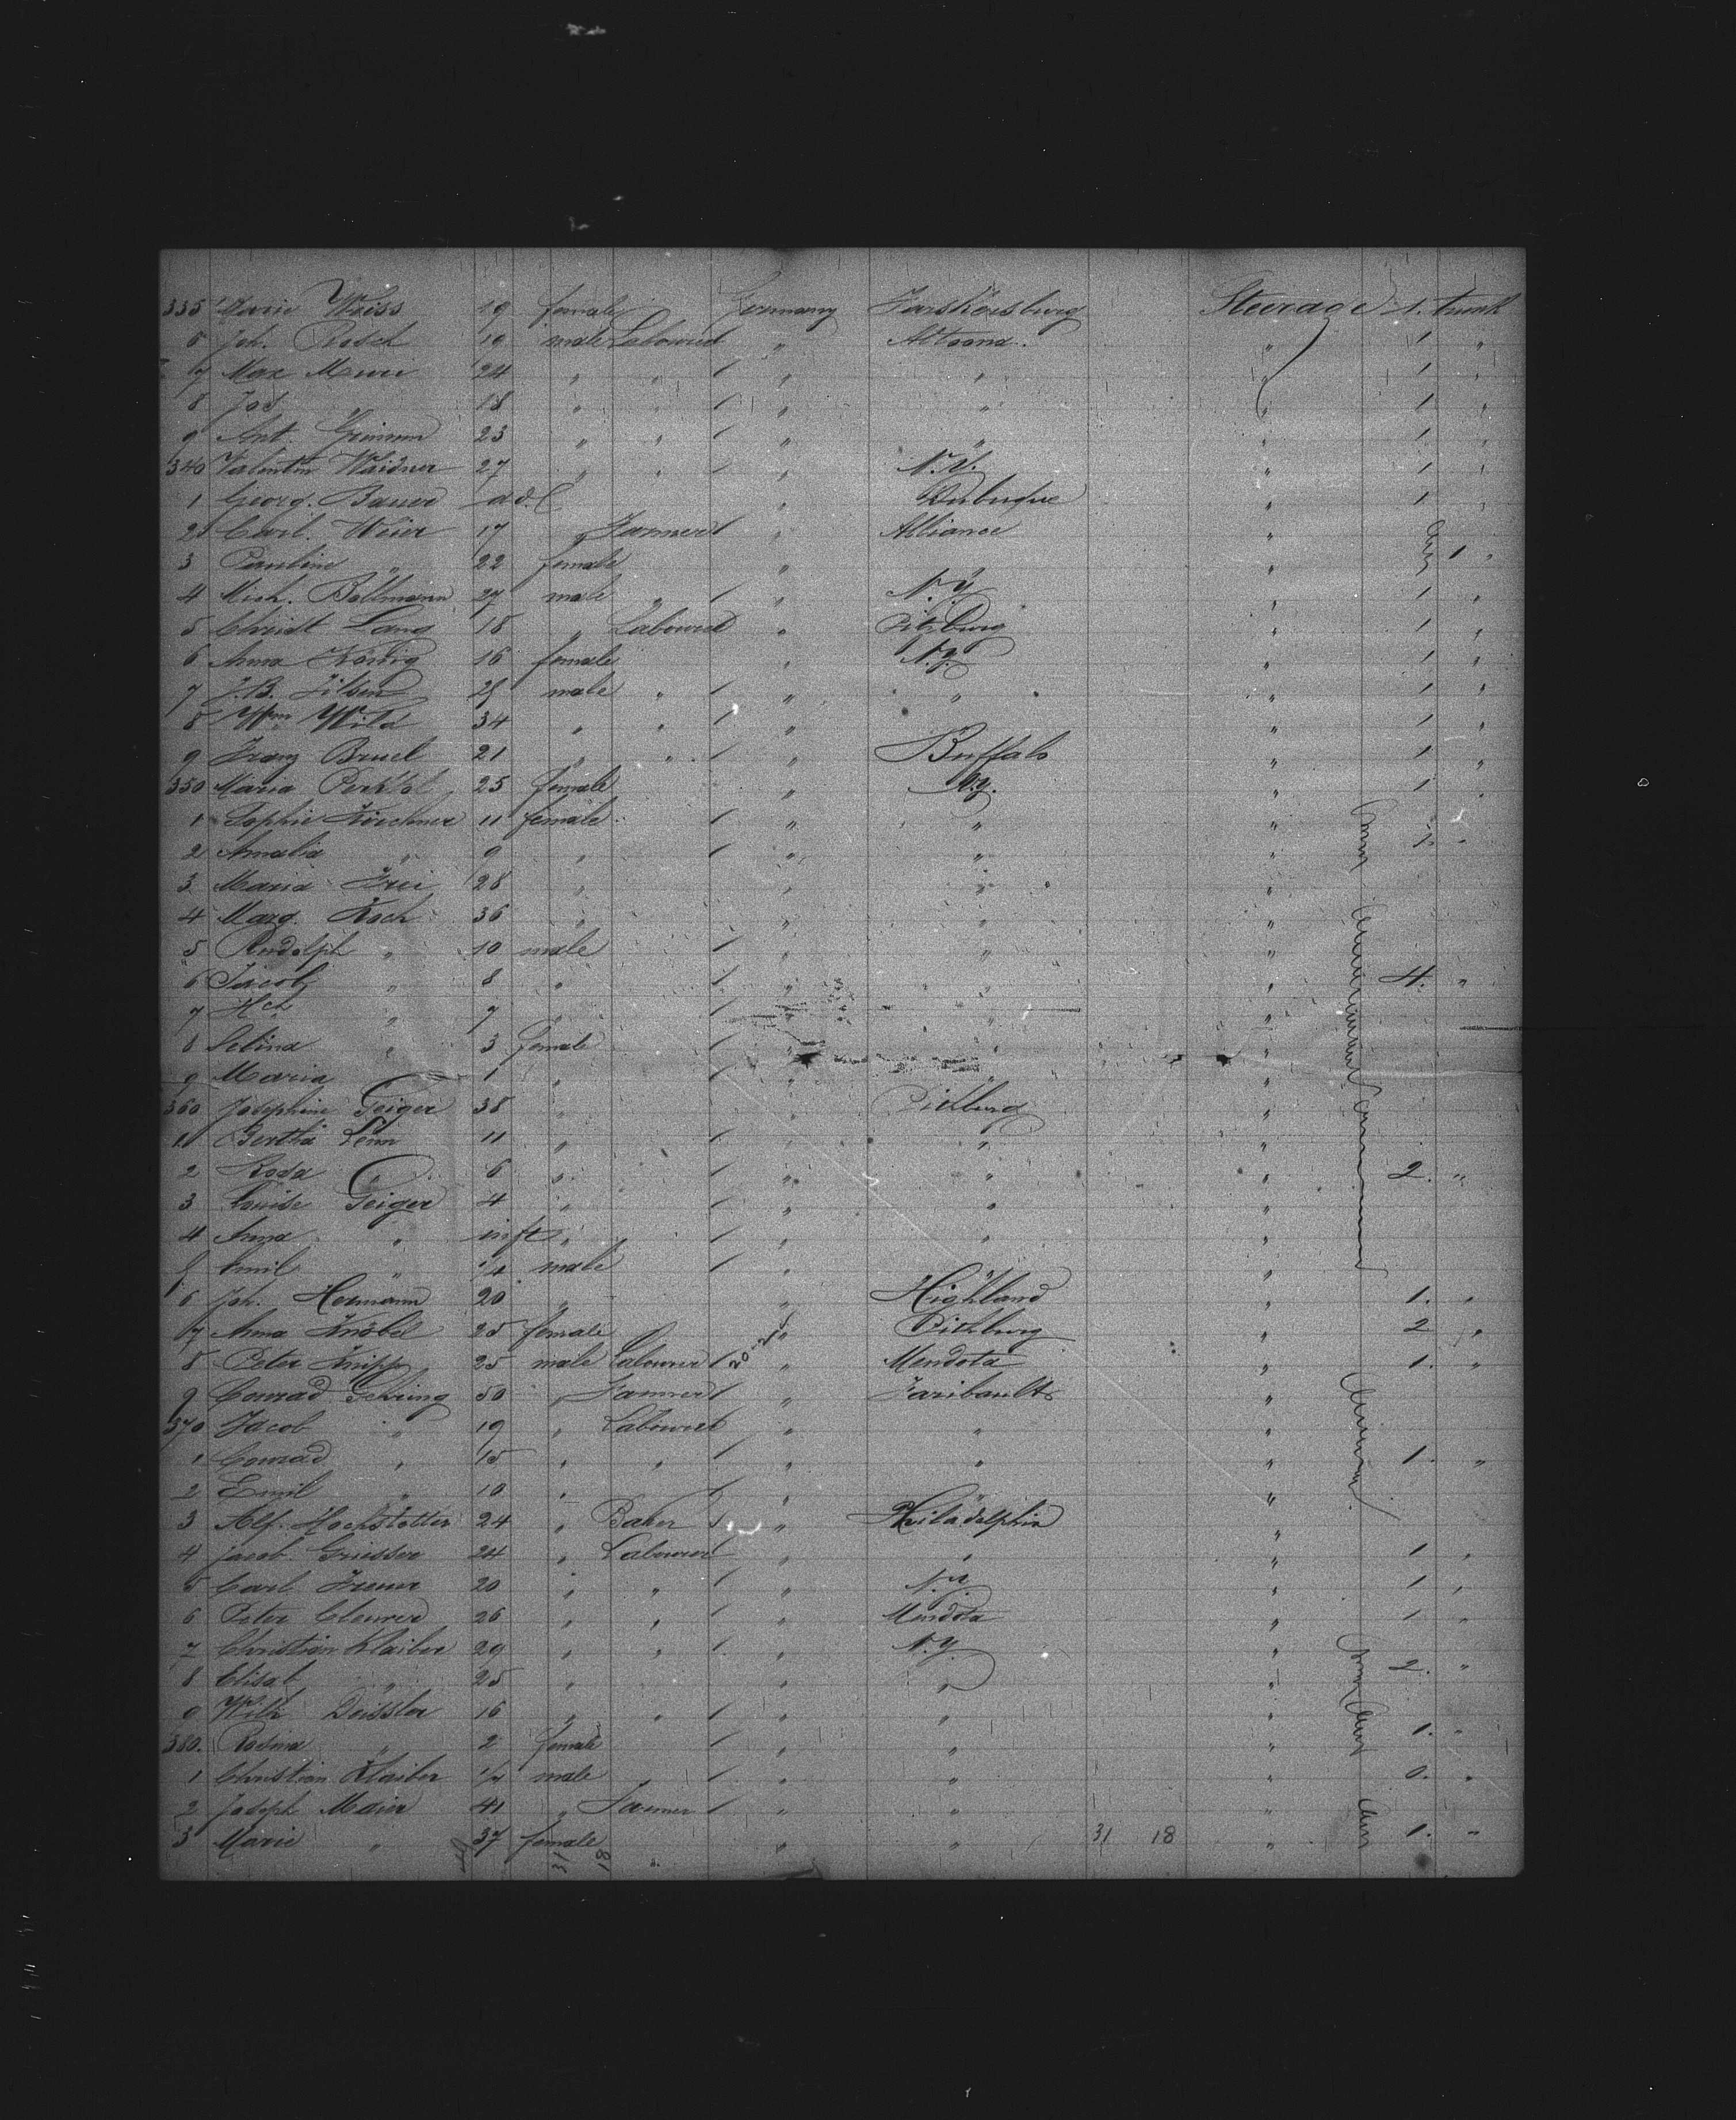 335 Marie Weiss 19 female Germany Steerage 1. trunk
6 Joh. Rosch 19 male Labourer " Altoona. " 1 "
7 Max 24 " " " " " 1 "
8 Jos " 18 " " " " " 1 "
9 Ant. Grimm 23 " " " " " 1 "
340 Valentin Waidner 27 " " " N.Y. " 1 "
1 Georg. Bauer " Dubuque " 1 "
2 Carl. Weier 17 " Farmer " Alliance "
3 Pauline " 22 female " " " 1 "
4 Mich. Bollmann 27 male " " N.Y. " 1 "
5 Christ Lang 18 " Labourer " Pitsburg " 1 "
6 Anna König 16 female " N.Y. " 1 "
7 J.B. male " " " " 1 "
8 Wm Wild 34 " " " " 1 "
9 Franz Bruel 21 " " " Buffalo " 1 "
350 Maria 25 female " N.Y. " 1 "
1 Sophie Kirchner 11 female " " " 1 "
2 Amalia " 9 " " " "
3 Maria Frei 28 " " " "
4 Marg. Koch 36 " " " "
5 Rudolph " 10 male " " "
6 Jacob " 8 " " " " 4. "
7 Hch " 7 " " " "
8 Selina " 3 female " " "
9 Maria " 1 " " " "
360 Josephine Geiger 38 " " Pittburg "
1 Bertha 11 " " " "
2 Rosa " 6 " " " " 2. "
3 Louise Geiger 4 " " " "
4 Anna " inft " " " "
5 Emil " 1/4 male " " "
6 Joh. Hermann 20 " " Highland " 1. "
7 Anna Knöbel 25 female " Pittburg " 2 "
8 Peter Knipp 25 male Labourer " Mendota " 1. "
9 Conrad Gehring 50 " Farmer " Faribault "
370 Jacob " 19 " Labourer " " "
1 Conrad " 15 " " " " " 1. "
2 Emil " 10 " " " "
3 Alf. Hochstetter 24 " Baker " Philadelphia "
4 Jacob Griesser 24 " Labourer " " " 1 "
5 Carl 20 " " " N.Y. " 1 "
6 Peter 26 " " " Mendota " 1 "
7 Christian Klaiber 29 " " " N.Y. "
8 Elisab. " 25 " " " " 2. "
9 Wilh Deissler 16 " " " " "
380. Rosina " 2 female " " " 1. "
1 Christian Klaiber male " " " 0. "
2 Joseph Maier 41 " Farmer " " "
3 Marie " 37 female " " 31 18 " 1. "
31 18